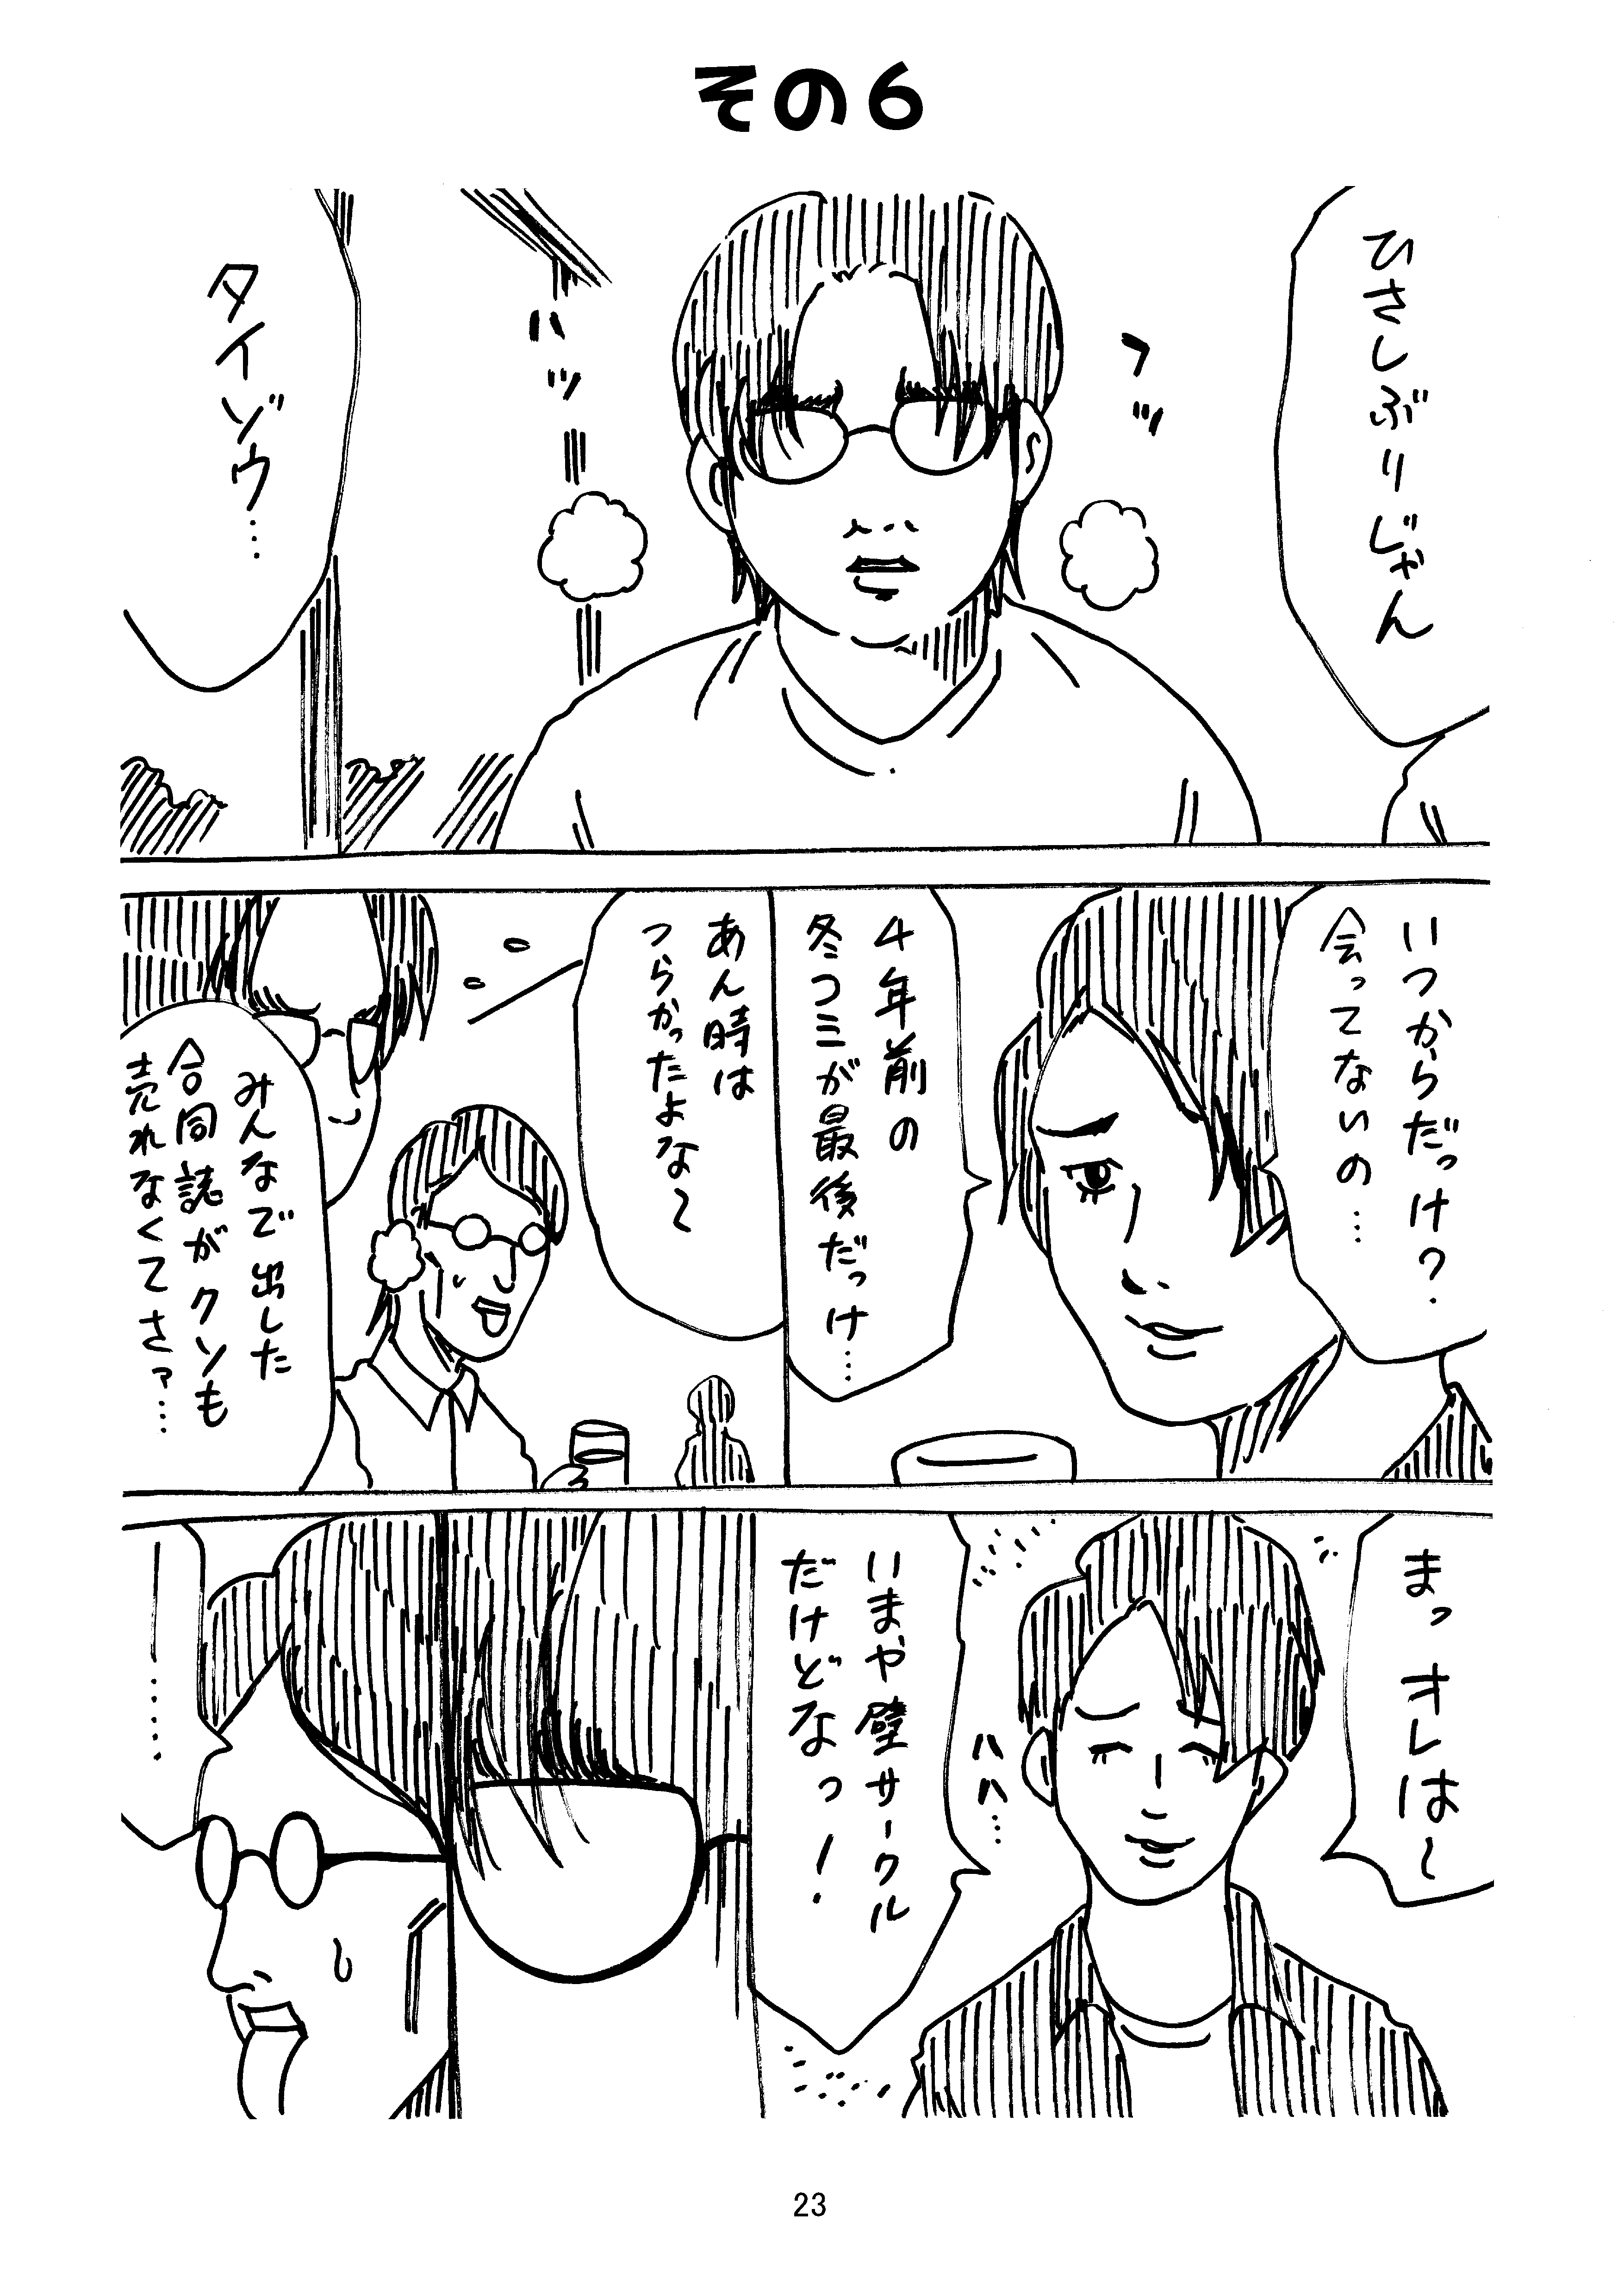 その6
ひさしぶりじゃん
フッ
ハッ
タイゾウ…
いつからだっけ?
会ってないの…
4年前の
冬コミが最後だっけ…
あん時は
つらかったよな〜
みんなで出した
合同誌がクソも
売れなくてさァ…
まっオレは〜
ハハ…
いまや壁サークル
だけどなっ!
―……
23